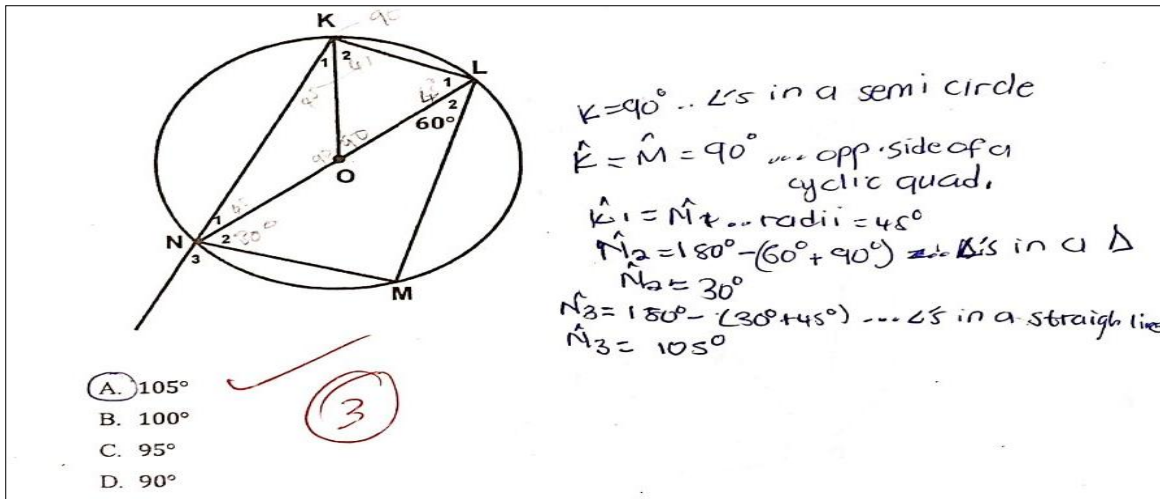 K
90
1
2
41
L
1
2
60°
O
N
1
2
30°
3
M
K=90° .. ∠'s in a semi circle
K̂ = M̂ = 90° .... opp. side of a
cyclic quad.
K̂1 = N̂1 .. radii = 45°
N̂2 = 180° - (60° + 90°) ... ∠'s in a Δ
N̂2 = 30°
N̂3 = 180° - (30° + 45°) .... ∠s in a straigh line
N̂3 = 105°
A. 105°
B. 100°
C. 95°
D. 90°
3